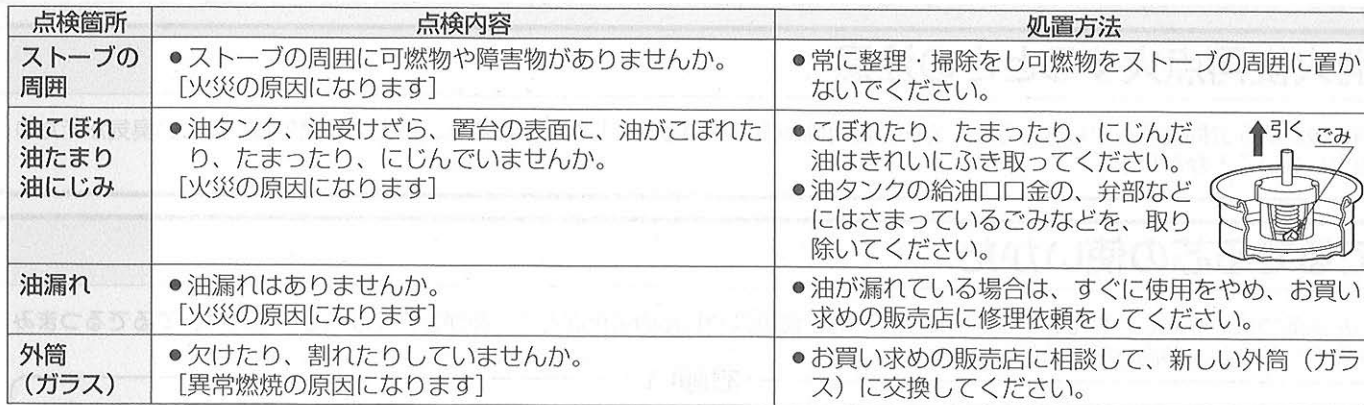 点検箇所 点検内容 処置方法
ストーブの
周囲
●ストーブの周囲に可燃物や障害物がありませんか。
［火災の原因になります］
●常に整理・掃除をし可燃物をストーブの周囲に置か
ないでください。
油こぼれ
油たまり
油にじみ
●油タンク、油受けざら、置台の表面に、油がこぼれた
り、たまったり、にじんでいませんか。
［火災の原因になります］
●こぼれたり、たまったり、にじんだ
油はきれいにふき取ってください。
●油タンクの給油口口金の、弁部など
にはさまっているごみなどを、取り
除いてください。
引く ごみ
油漏れ
●油漏れはありませんか。
［火災の原因になります］
●油が漏れている場合は、すぐに使用をやめ、お買い
求めの販売店に修理依頼をしてください。
外筒
（ガラス）
●欠けたり、割れたりしていませんか。
［異常燃焼の原因になります］
●お買い求めの販売店に相談して、新しい外筒（ガラ
ス）に交換してください。